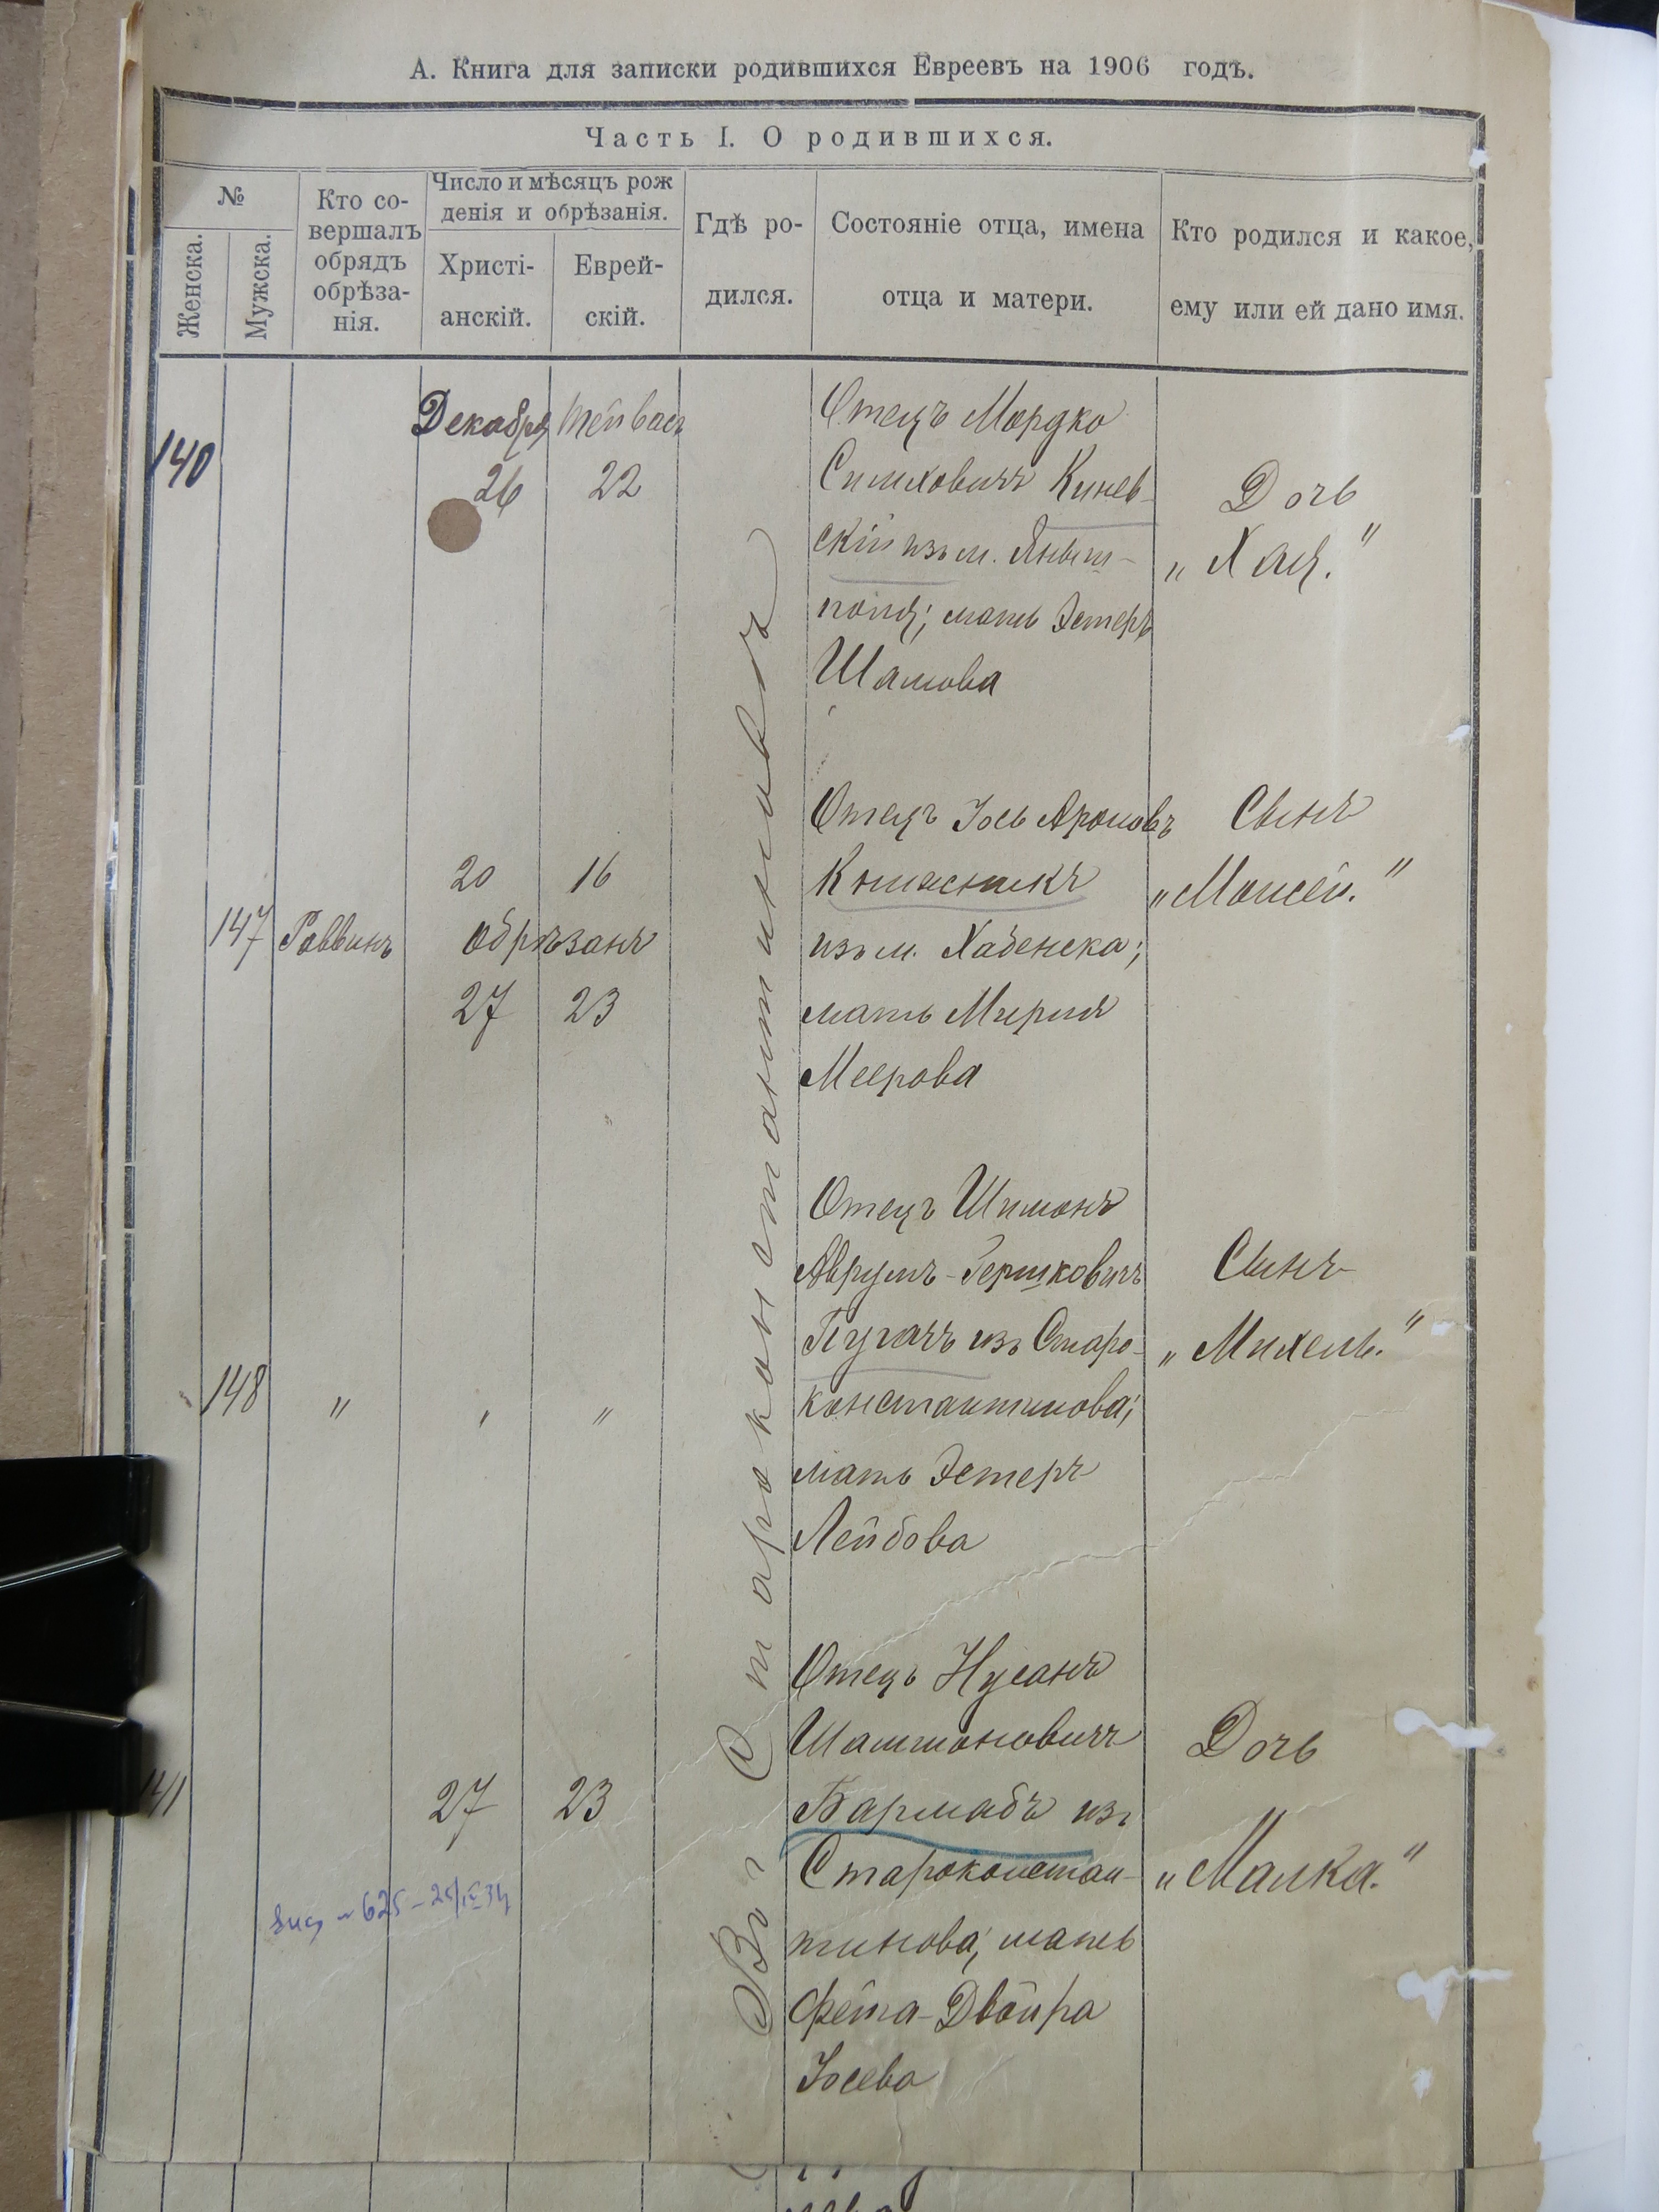 А. Книга для записки родившихся Евреевъ на 1906 годъ.
Часть I. О родившихся.
№
Женска.
Мужска.
Кто со-
вершалъ
обрядъ
обрѣза-
нія.
Число и мѣсяцъ рож
денія и обрѣзанія.
Христі-
анскій.
Еврей-
скій.
Гдѣ ро-
дился.
Состояніе отца, имена
отца и матери.
Кто родился и какое,
ему или ей дано имя.
Въ Староконстантиновѣ
140
Декабря Тейвась
26 22
Отецъ Мордко
Симховичъ Киев-
скій изъ м.
поля; мать Эстеръ
Шамова
Дочь
„Хая."
147 Раввинъ
20 16
Обрѣзанъ
27 23
Отецъ Іось Ароновъ
изъ м. Хабенска;
мать Мирия
Меерова
Сынъ
„Моисей."
148 " " "
Отецъ Шимонъ
Аврумъ-Гершковичъ
Пугачъ изъ Старо-
константинова;
мать Эстеръ
Лейбова
Сынъ
„Михель."
141
27 23
Отецъ Нусанъ
Шамшоновичъ
Бармабъ изъ
Староконстан-
тинова; мать
Фейга-Двойра
Іосева
Дочь
„Малка."
625 –